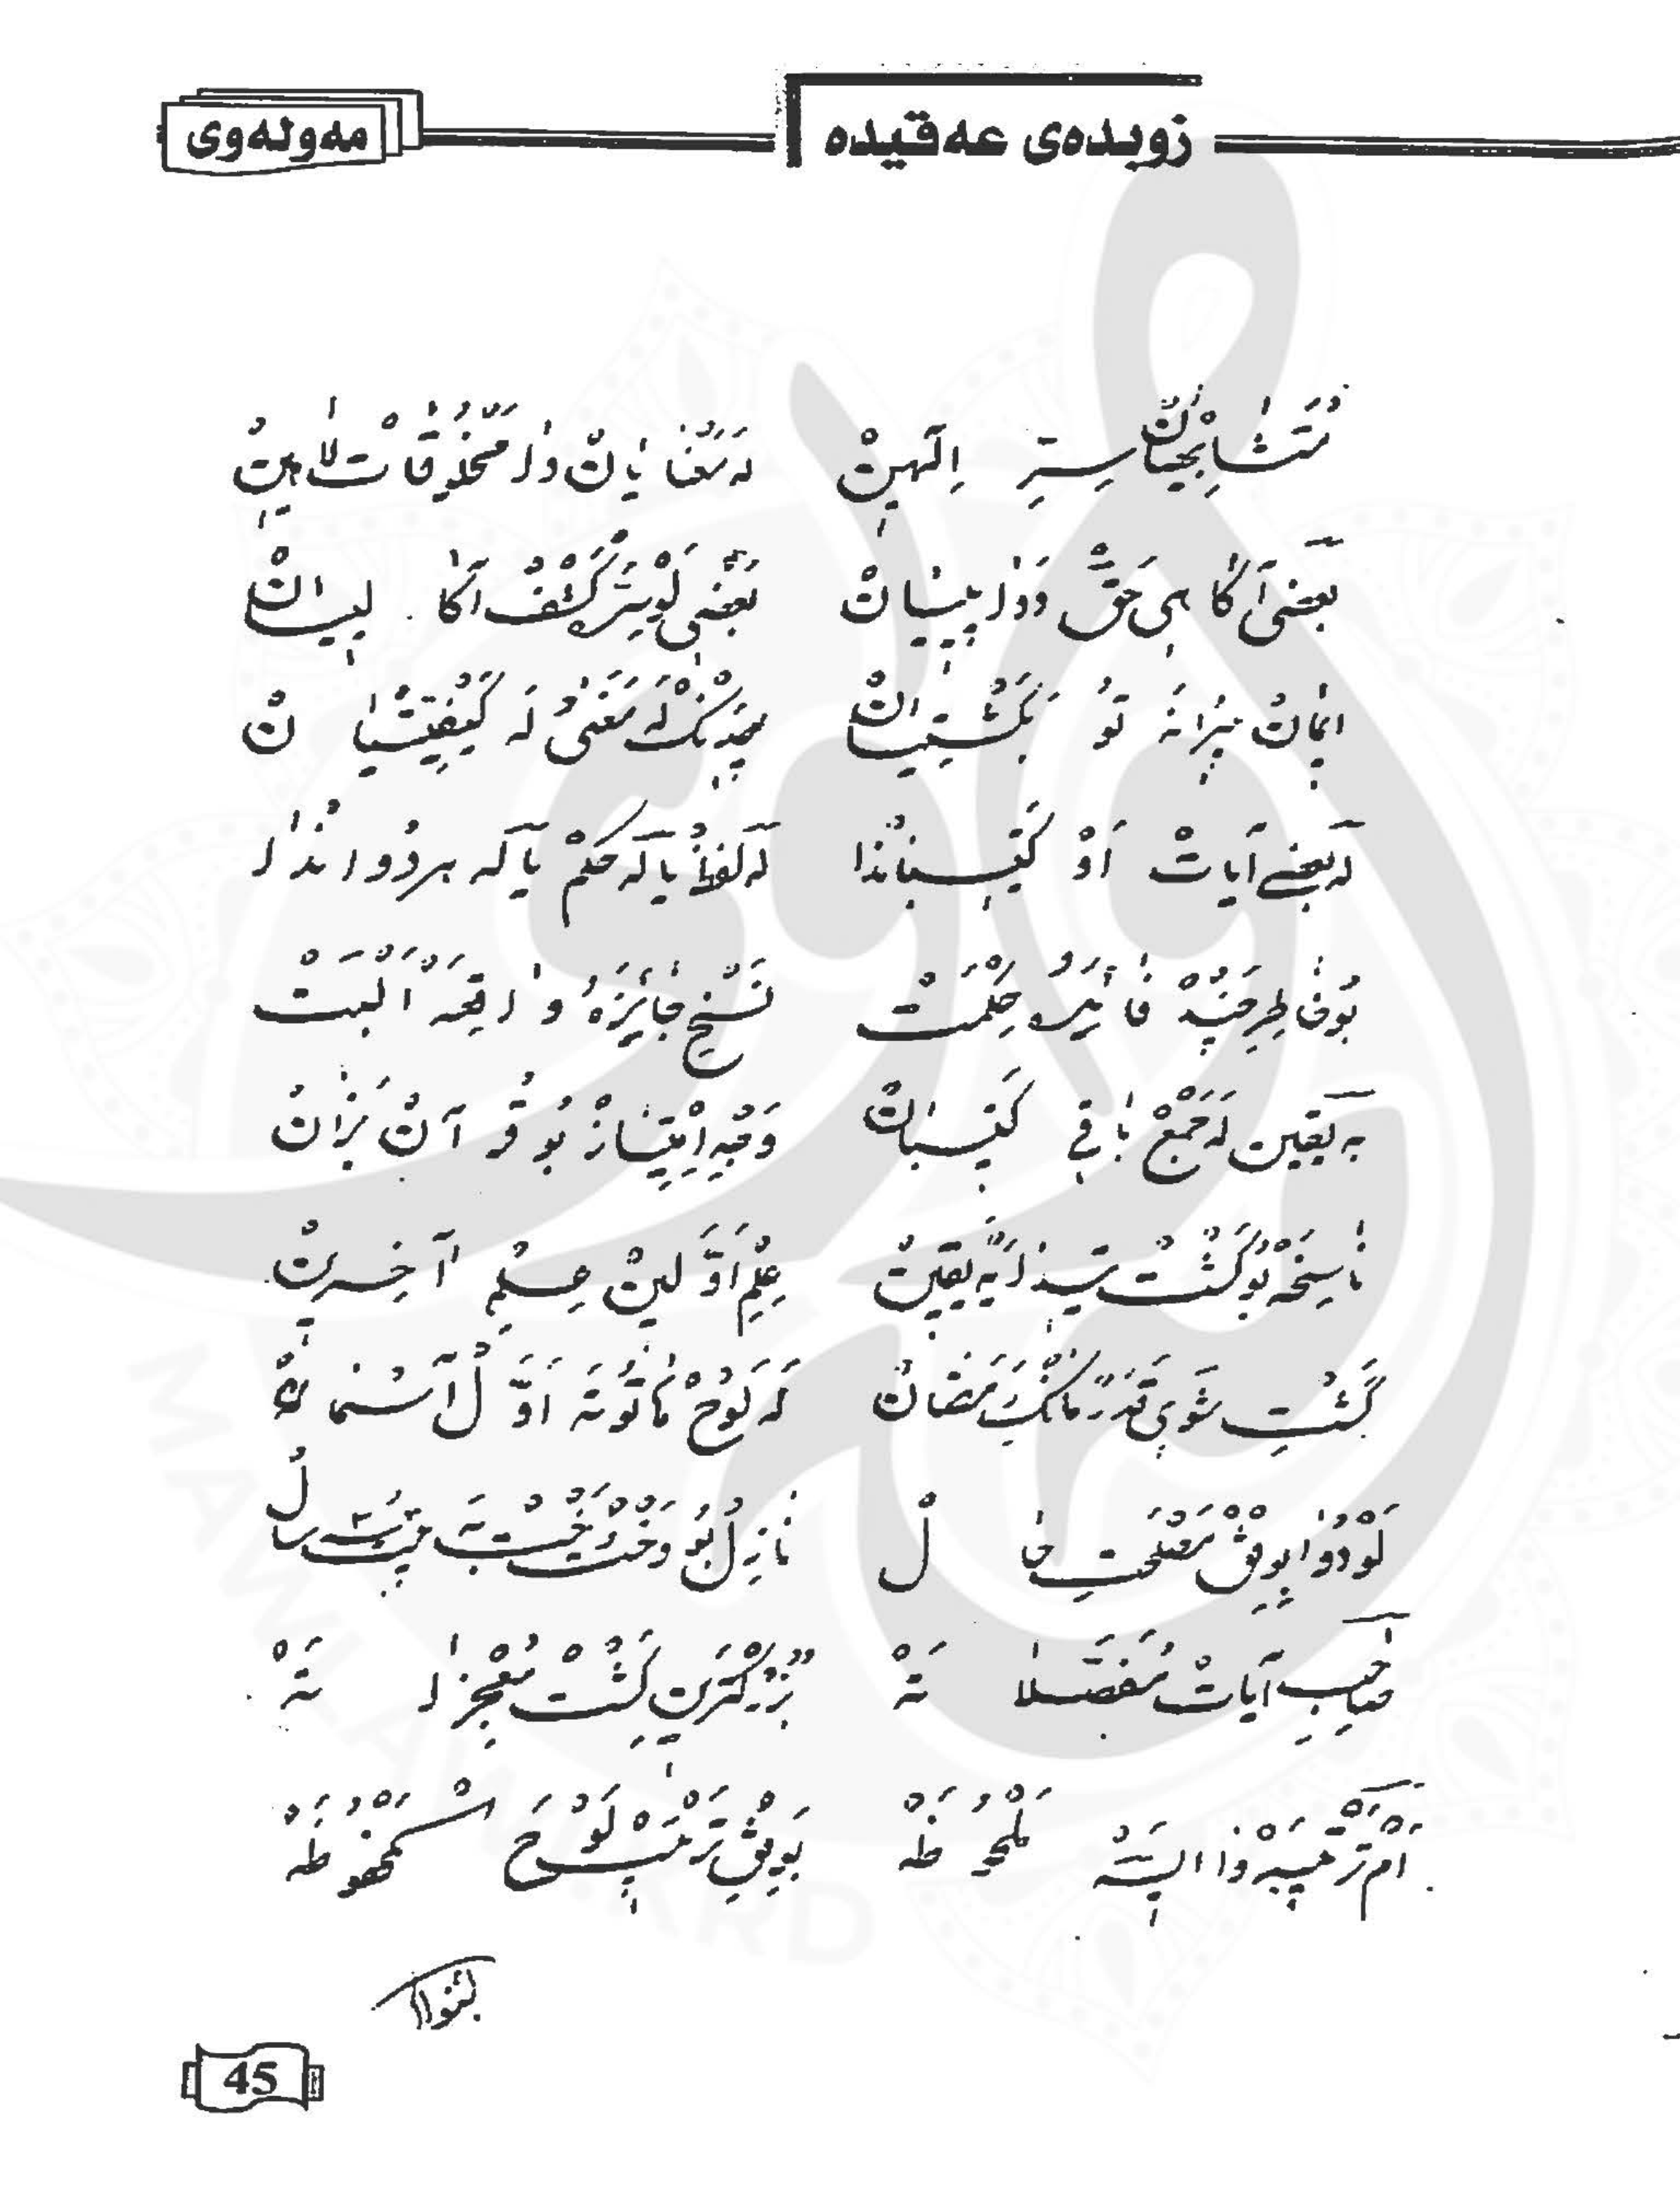 زوبدەی عەقیدە مەولەوی
متشابهیان سر الهین لە معنایان دا مخلوقات لاهین
بعضی آگاهی حق دوا پیسیان بعضی لو سر کشف آکا لیان
ایمان بیرانە تو بە گشتیان بێدنگ لە معنی و لە کیفیتیان
لە بعضی آیات او کتیبانەدا لە لفظ یا لە حکم یا لە هردواندا
بو خاطر چند فائدە و حکمت نسخ جائزە و واقعە البت
بە یقین لە جمع باقی کتیبان وجه امتیاز بو قرآن بزان
ناسخە بو گشت تیدایە یقین علم اولین علم آخرین
گشت شوی قدر مانگ رمضان لە لوح هاتوتە اول آسمان
لە و دوا بوفق مصلحت حال نازل بو وخت وخت بە بیست سال
صاحب آیات مفصلاتە بزرگترین گشت معجزاتە
ام ترتیبە وا ایستە ملحوظە بوفق ترتیب لوح محفوظە
45